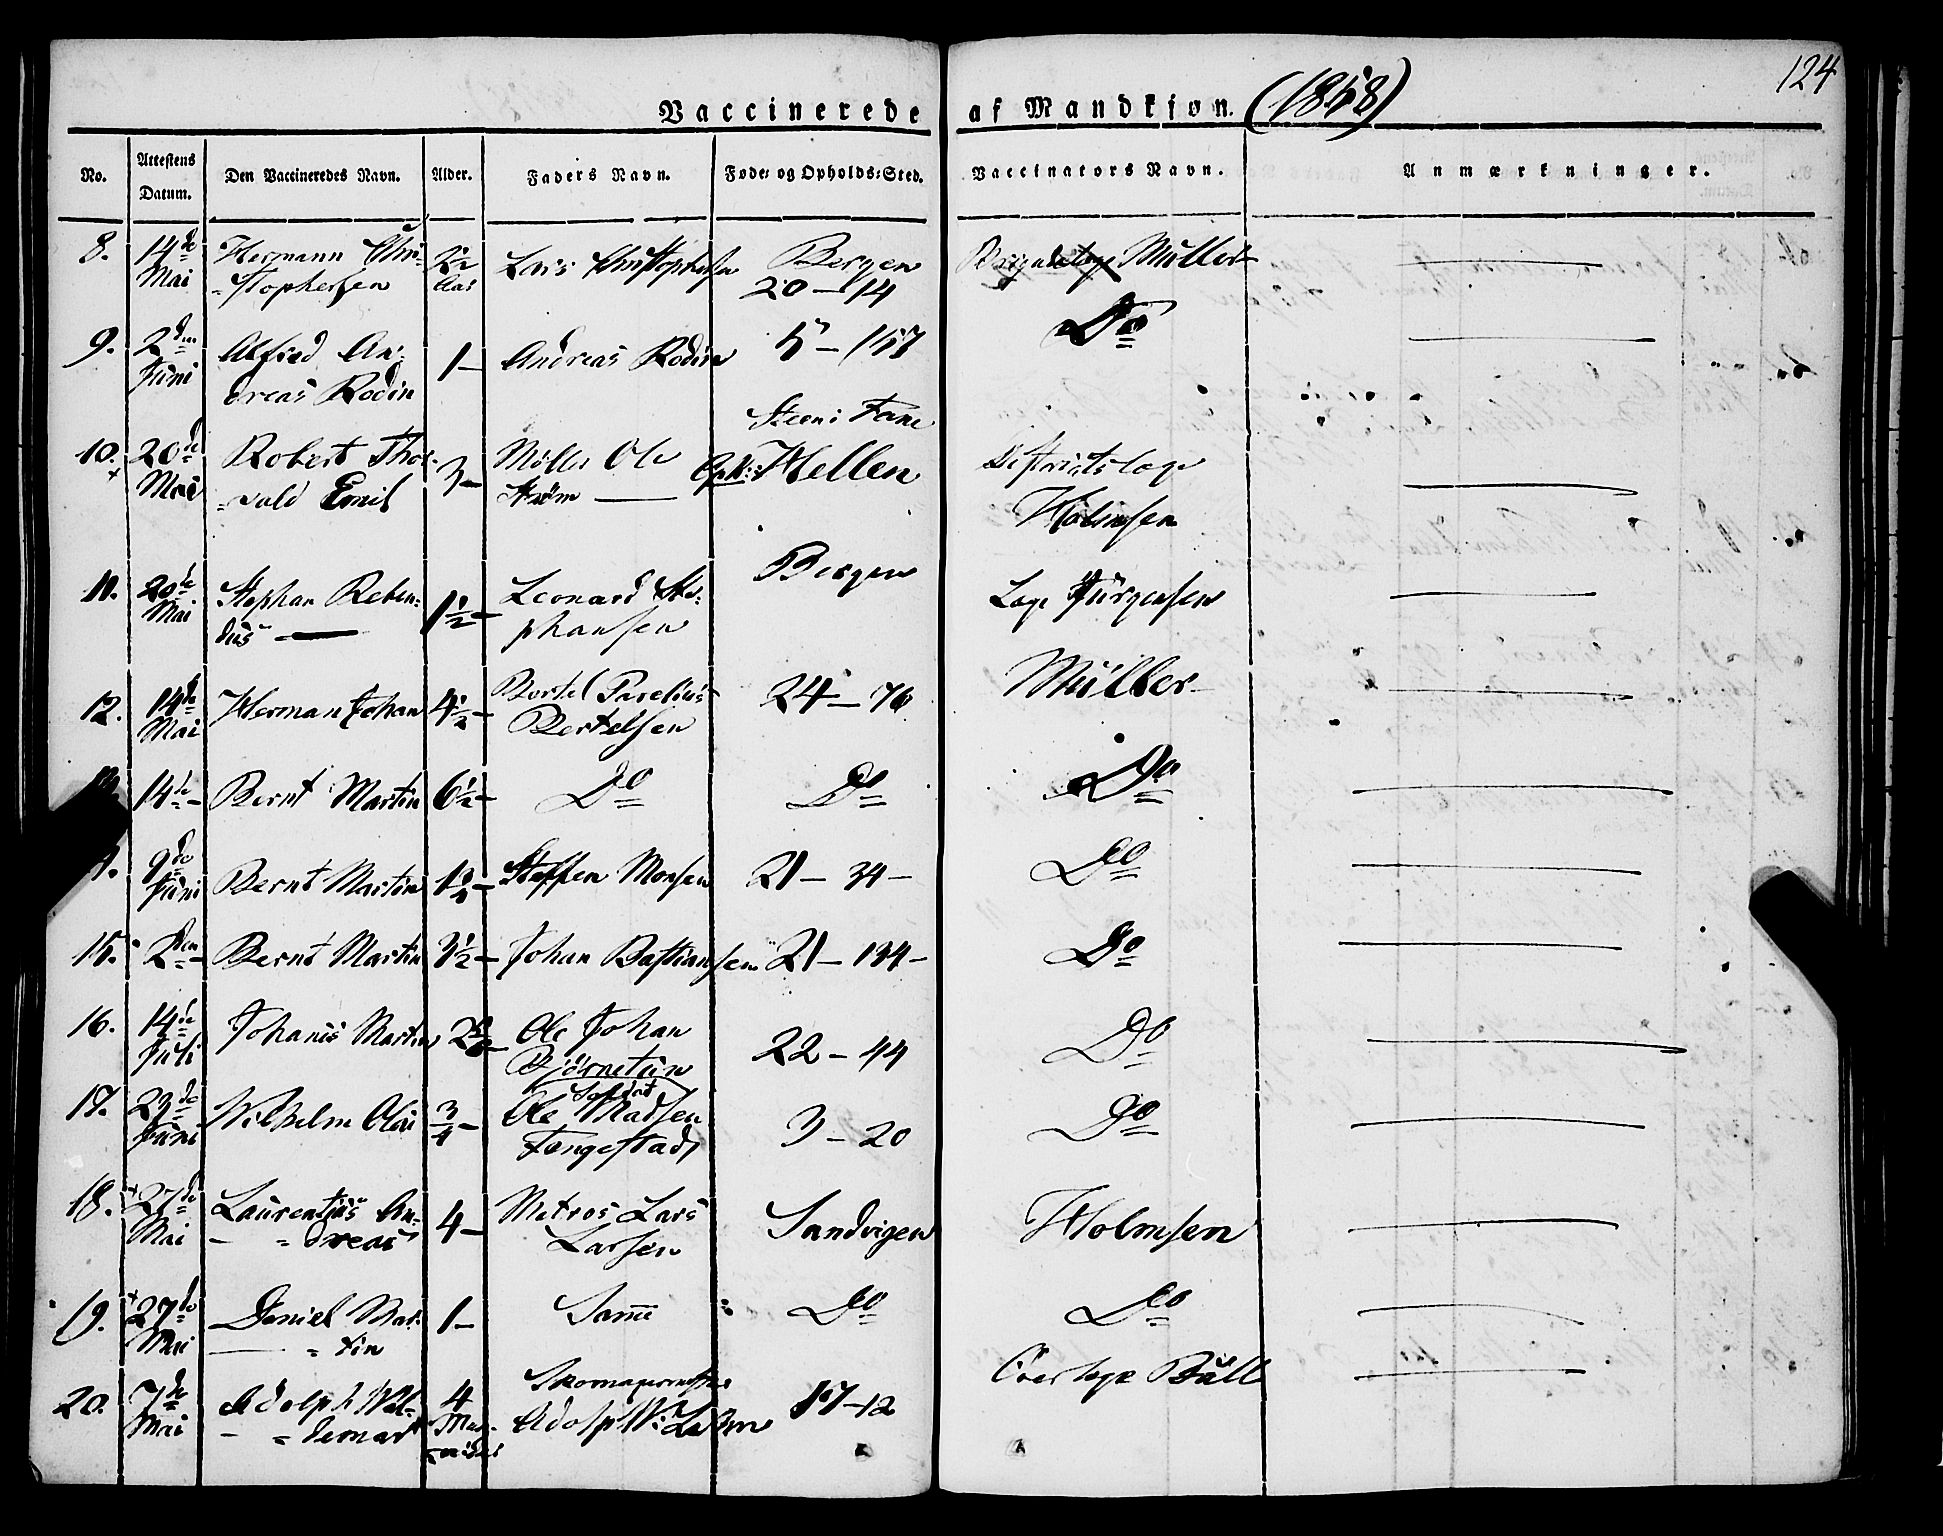 124
Vaccinerede af Mandkjøn. (1858)
No. Attestens Datum. Den Vaccineredes Navn. Alder. Faders Navn. Føde- og Opholds-Sted. Vaccinators Navn. Anmærkninger.
8. 14de Hermann Chri- 2½ Lars Christophersen Bergen Müller
Mai -stophersen Aar 20 - 14
9. 2den Alfred An- 1 - Andreas Rodin 5 - 157 Do
Juni dreas Rodin
Steen i Fane
10. 20de Robert Thor- 3 - Møller Ole Hellen Districtslæge
Mai -vald Emil Strøm Holmsen
11. 20de Stephan Reben- 1½ - Leonard Ste- Bergen Læge Jürgensen
Mai dus phansen
12. 14de Herman Johan 4½ - Bertel Parelius 24 - 76 Müller
Mai Bertelsen
13. 14de - Bernt Martin 6½ - Do Do Do
9de Bernt Martin 1¾ - Steffen Monsen 21 - 34 - Do
Juni
15. 2den - Bernt Martin 3½ - Johan Bastiansen 21 - 134 - Do
16. 14de Johanes Martin Ole Johan 22 - 44 Do
Juli Bjørnetun
17. 23de Wilhelm Olai ¾ - Soldat 3 - 20 Do
Juni Ole Madsen
Tengestad
18. 27de Laurentius An- 4 - Matros Lars Sandvigen Holmsen
Mai - - dreas Larsen
19. 27de Daniel Mar- 1 - Samme Do Do
Mai - tin
20. 7de Adolph Wal- 4 Skomagermester 17 - 12 Overlæge Bull
Mai - - demar Maaneder Adolp W: